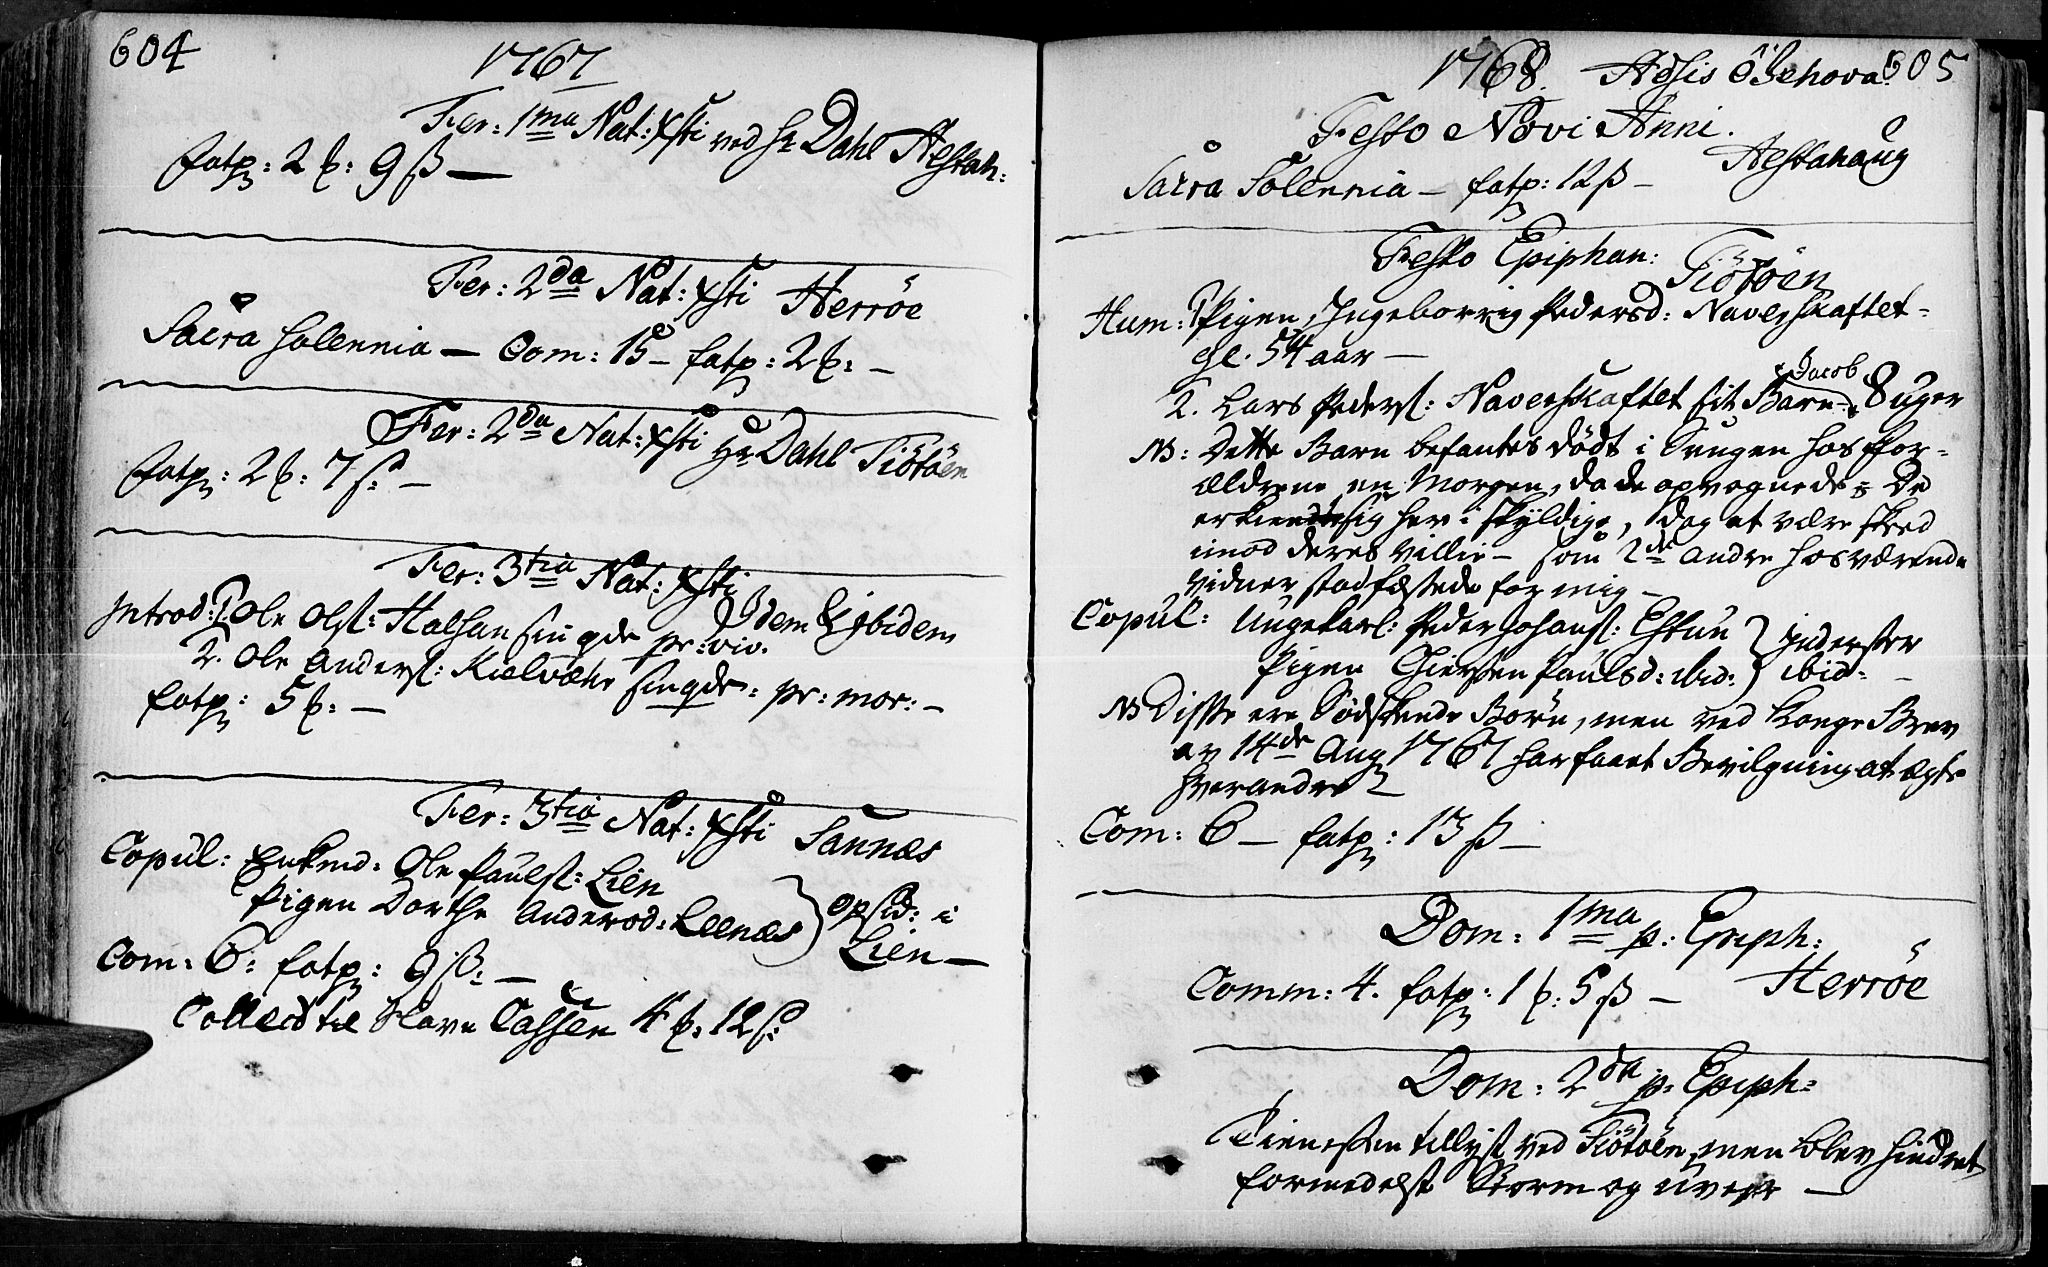 604
1767
Fer: 1ma Nat: Xsti ved Hr Dahl Alstah:
fatp: 2 ƶ: 9 ß —
Fer: 2da Nat: Xsti Herröe
Sacra Solennia — Com: 15 — fatp: 2 ƶ: —
Fer: 2da Nat: Xsti Hr Dahl Tiötöen
fatp: 2 ƶ: 7 ß: —
Fer: 3tia Nat: Xsti
Idem & ibidem
Introd: 1 Ole Olss: Halsan sin qde pr: viv.
2. Ole Anders: Kielvæhr sin qde: pr: mor: —
fatp: 5 ƶ: —
Fer: 3tia Nat: Xsti Sannæs
Copul: Enkemd: Ole Paulss: Lien
Pigen Dorthe Andersd: Leenæs } opsid: i
Lien —
Com: 6: fatp: 9 ß: —
Collect til Slave Cassen 4 ƶ: 12 ß:
1768. Adsis ô Jehova! 605
Festo Novi Anni.
Alstahaug
Sacra Solennia — fatp: 12 ß —
Festo Epiphan: Tiötöen
Hum: 1 Pigen, Ingeborrig Pedersd: Naverskaftet —
gl. 54 aar —
2. Lars Peders: Naverskaftet sit Barn Jacob 8 uger
NB: Dette Barn befantes dödt i Sengen hos For-
ældrene en Morgen, da de opvognede = De
erkiendte sig her i skyldige, dog at være skeed
imod deres Villie — som 2de andre hosværende
Vidner stadfæstede for mig —
Copul: Ungekarl: Peder Johanss: Estun } Inderster
Pigen Chirsten Paulsd: ibid: } ibid: —
NB Disse ere Södskende Börn, men ved Konge Brev
av 14de Aug 1767 har faaet Bevilgning at ægte
hverandre
Com: 6 — fatp: 13 ß —
Dom: 1ma p: Epiph:
Herröe
Comm: 4. fatp: 1 ƶ: 5 ß —
Dom: 2da p: Epiph:
Tienesten tillyst ved Tiötöen, men blev hindret
formedelst Storm og uveyr —